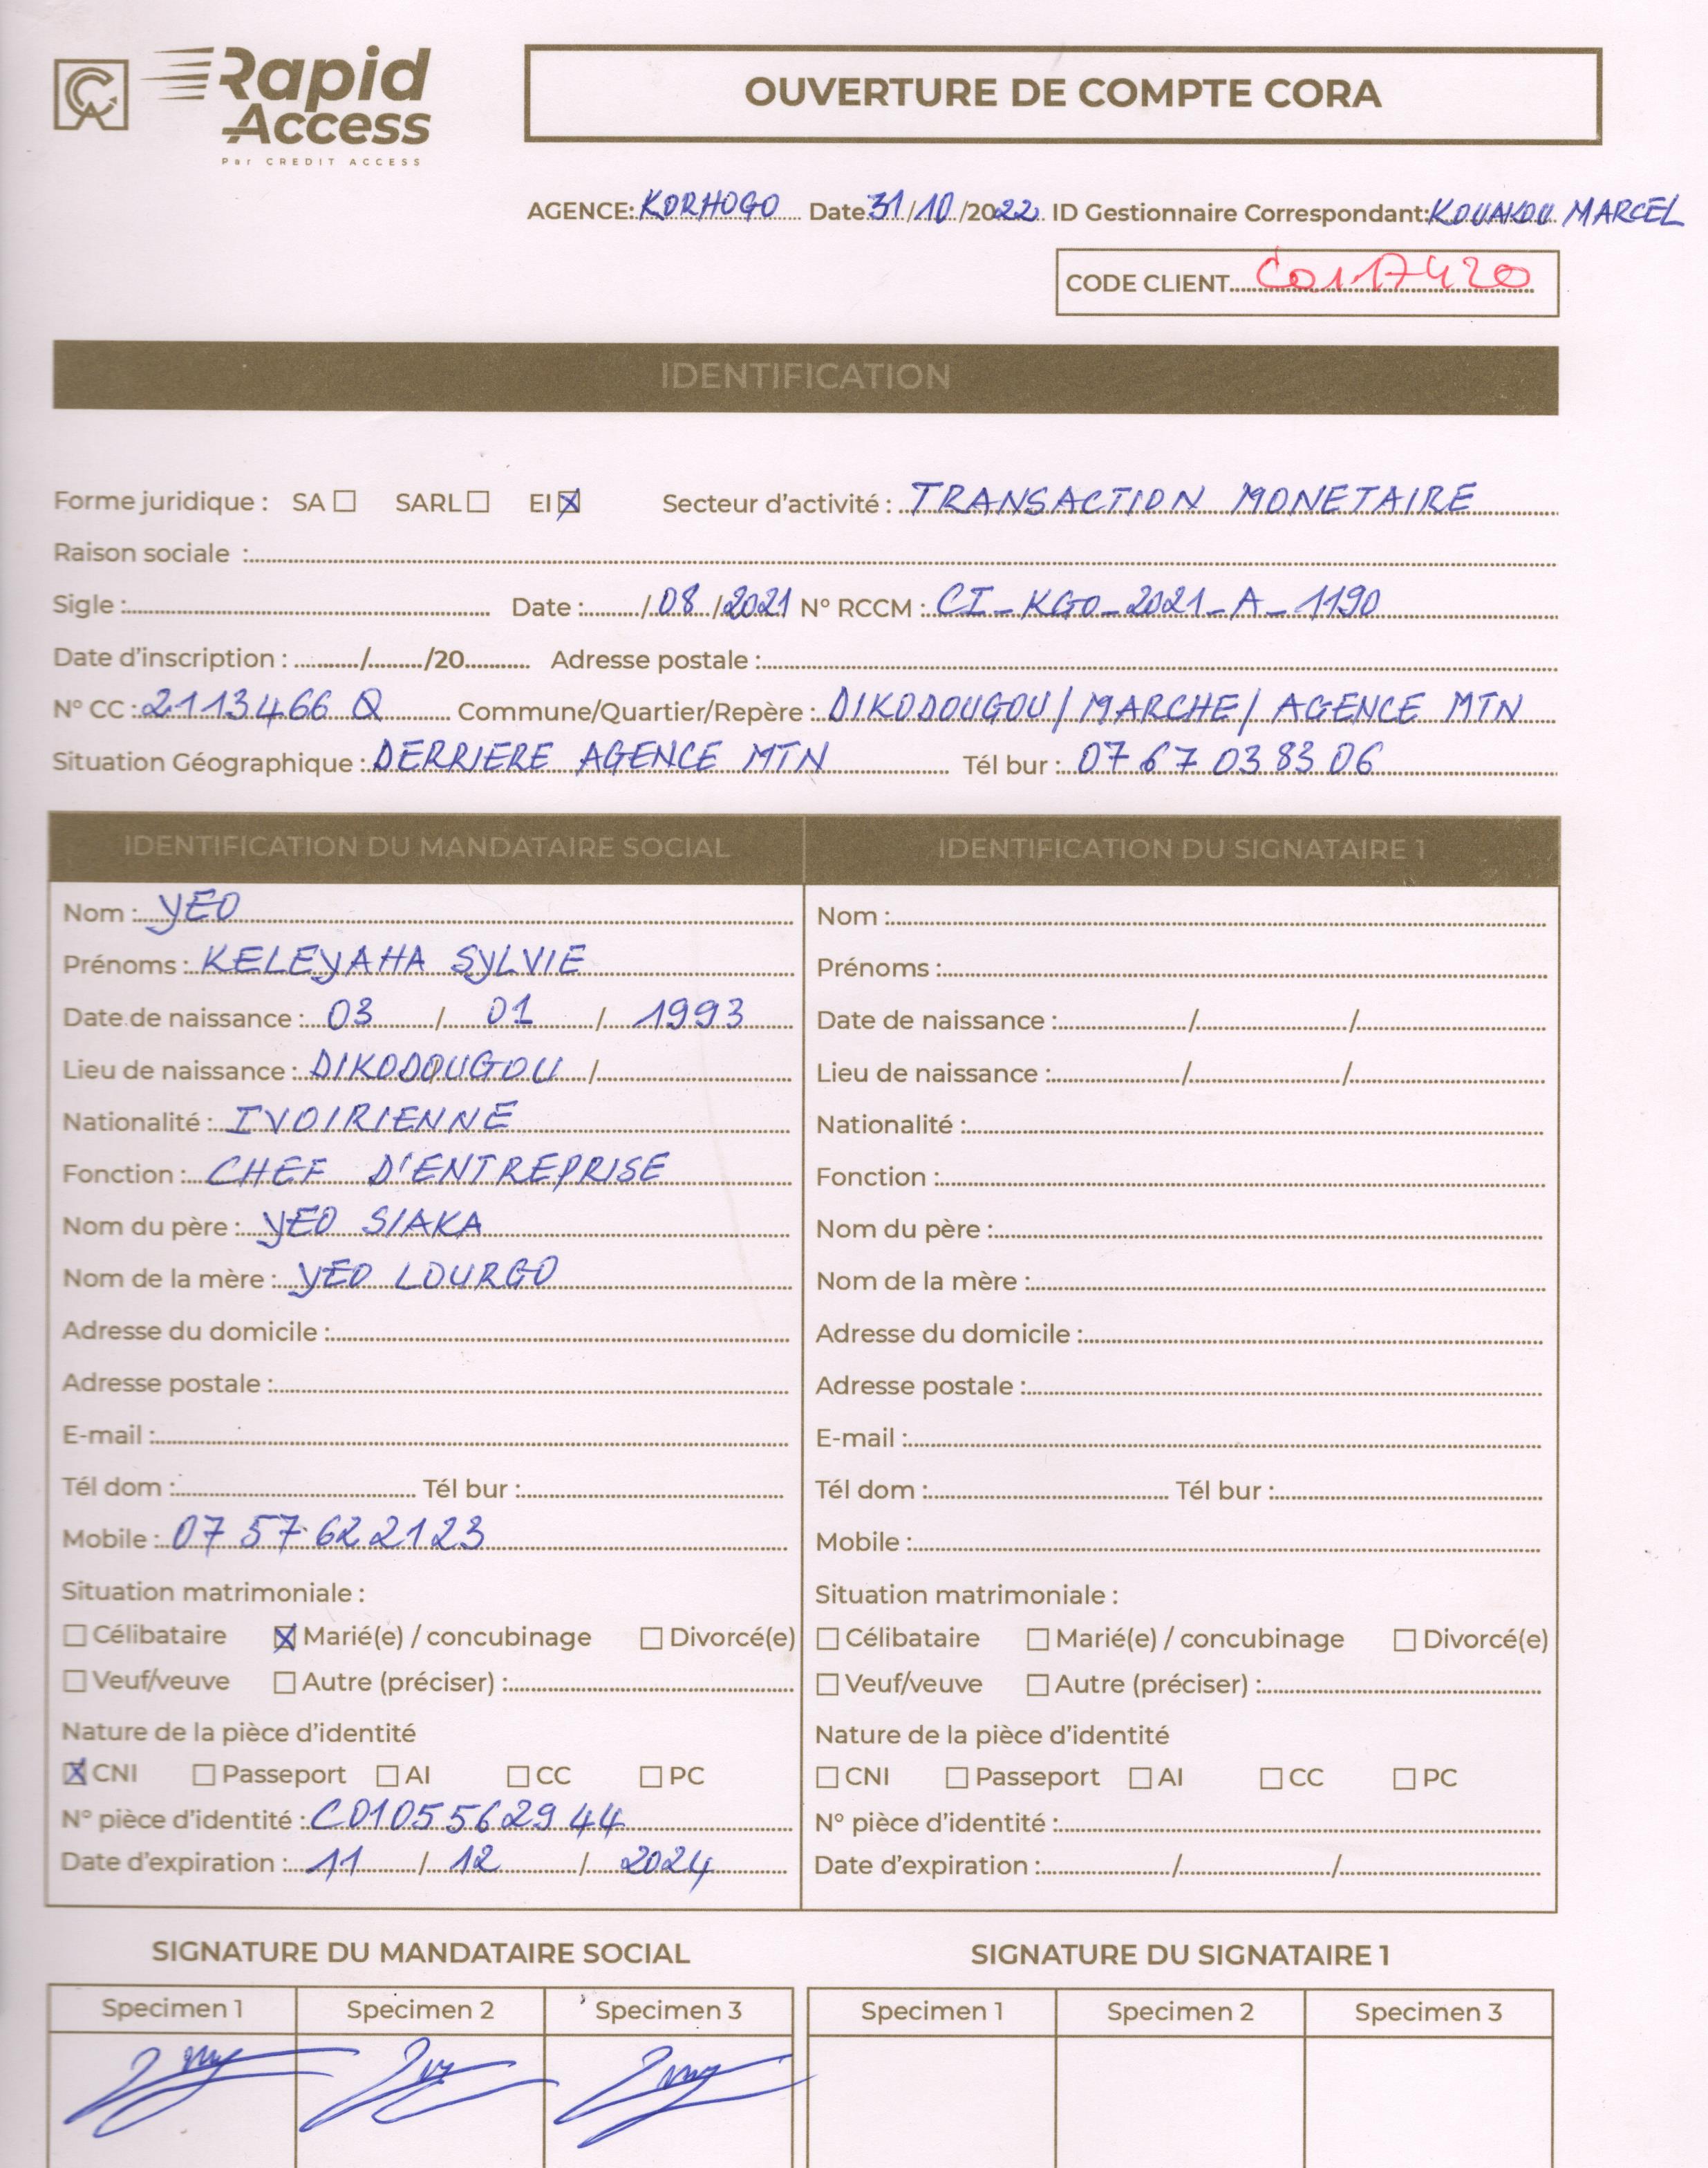 Rapid
Access
Par CREDIT ACCESS
OUVERTURE DE COMPTE CORA
AGENCE: KORHOGO Date 31/10/2022 ID Gestionnaire Correspondant: KOUAKOU MARCEL
CODE CLIENT C0117420
IDENTIFICATION
Forme juridique : SA ☐ SARL ☐ EI ☒ Secteur d'activité : TRANSACTION MONETAIRE
Raison sociale :
Sigle : Date : / 08 / 2021 N° RCCM : CI_KGO_2021_A_1190
Date d'inscription : / /20 Adresse postale :
N° CC : 2113466 Q Commune/Quartier/Repère : DIKODOUGOU / MARCHE / AGENCE MTN
Situation Géographique : DERRIERE AGENCE MTN Tél bur : 07 67 03 83 06
IDENTIFICATION DU MANDATAIRE SOCIAL
Nom : YEO
Prénoms : KELEYAHA SYLVIE
Date de naissance : 03 / 01 / 1993
Lieu de naissance : DIKODOUGOU /
Nationalité : IVOIRIENNE
Fonction : CHEF D'ENTREPRISE
Nom du père : YEO SIAKA
Nom de la mère : YEO LOURGO
Adresse du domicile :
Adresse postale :
E-mail :
Tél dom : Tél bur :
Mobile : 07 57 62 21 23
Situation matrimoniale :
☐ Célibataire ☒ Marié(e) / concubinage ☐ Divorcé(e)
☐ Veuf/veuve ☐ Autre (préciser) :
Nature de la pièce d'identité
☒ CNI ☐ Passeport ☐ AI ☐ CC ☐ PC
N° pièce d'identité : C0105562944
Date d'expiration : 11 / 12 / 2024
IDENTIFICATION DU SIGNATAIRE 1
Nom :
Prénoms :
Date de naissance : / /
Lieu de naissance : / /
Nationalité :
Fonction :
Nom du père :
Nom de la mère :
Adresse du domicile :
Adresse postale :
E-mail :
Tél dom : Tél bur :
Mobile :
Situation matrimoniale :
☐ Célibataire ☐ Marié(e) / concubinage ☐ Divorcé(e)
☐ Veuf/veuve ☐ Autre (préciser) :
Nature de la pièce d'identité
☐ CNI ☐ Passeport ☐ AI ☐ CC ☐ PC
N° pièce d'identité :
Date d'expiration : / /
SIGNATURE DU MANDATAIRE SOCIAL
Specimen 1 Specimen 2 Specimen 3
SIGNATURE DU SIGNATAIRE 1
Specimen 1 Specimen 2 Specimen 3